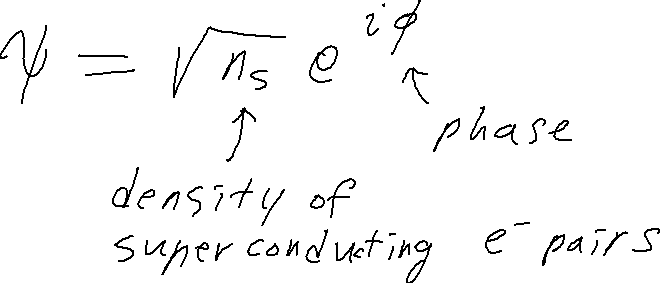 ψ = √n_s e^{iϕ}
phase
density of
superconducting e⁻ pairs